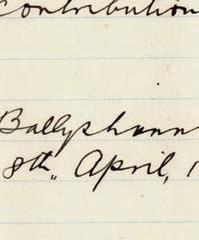 Contribution
Ballyshann
8th, April, 1